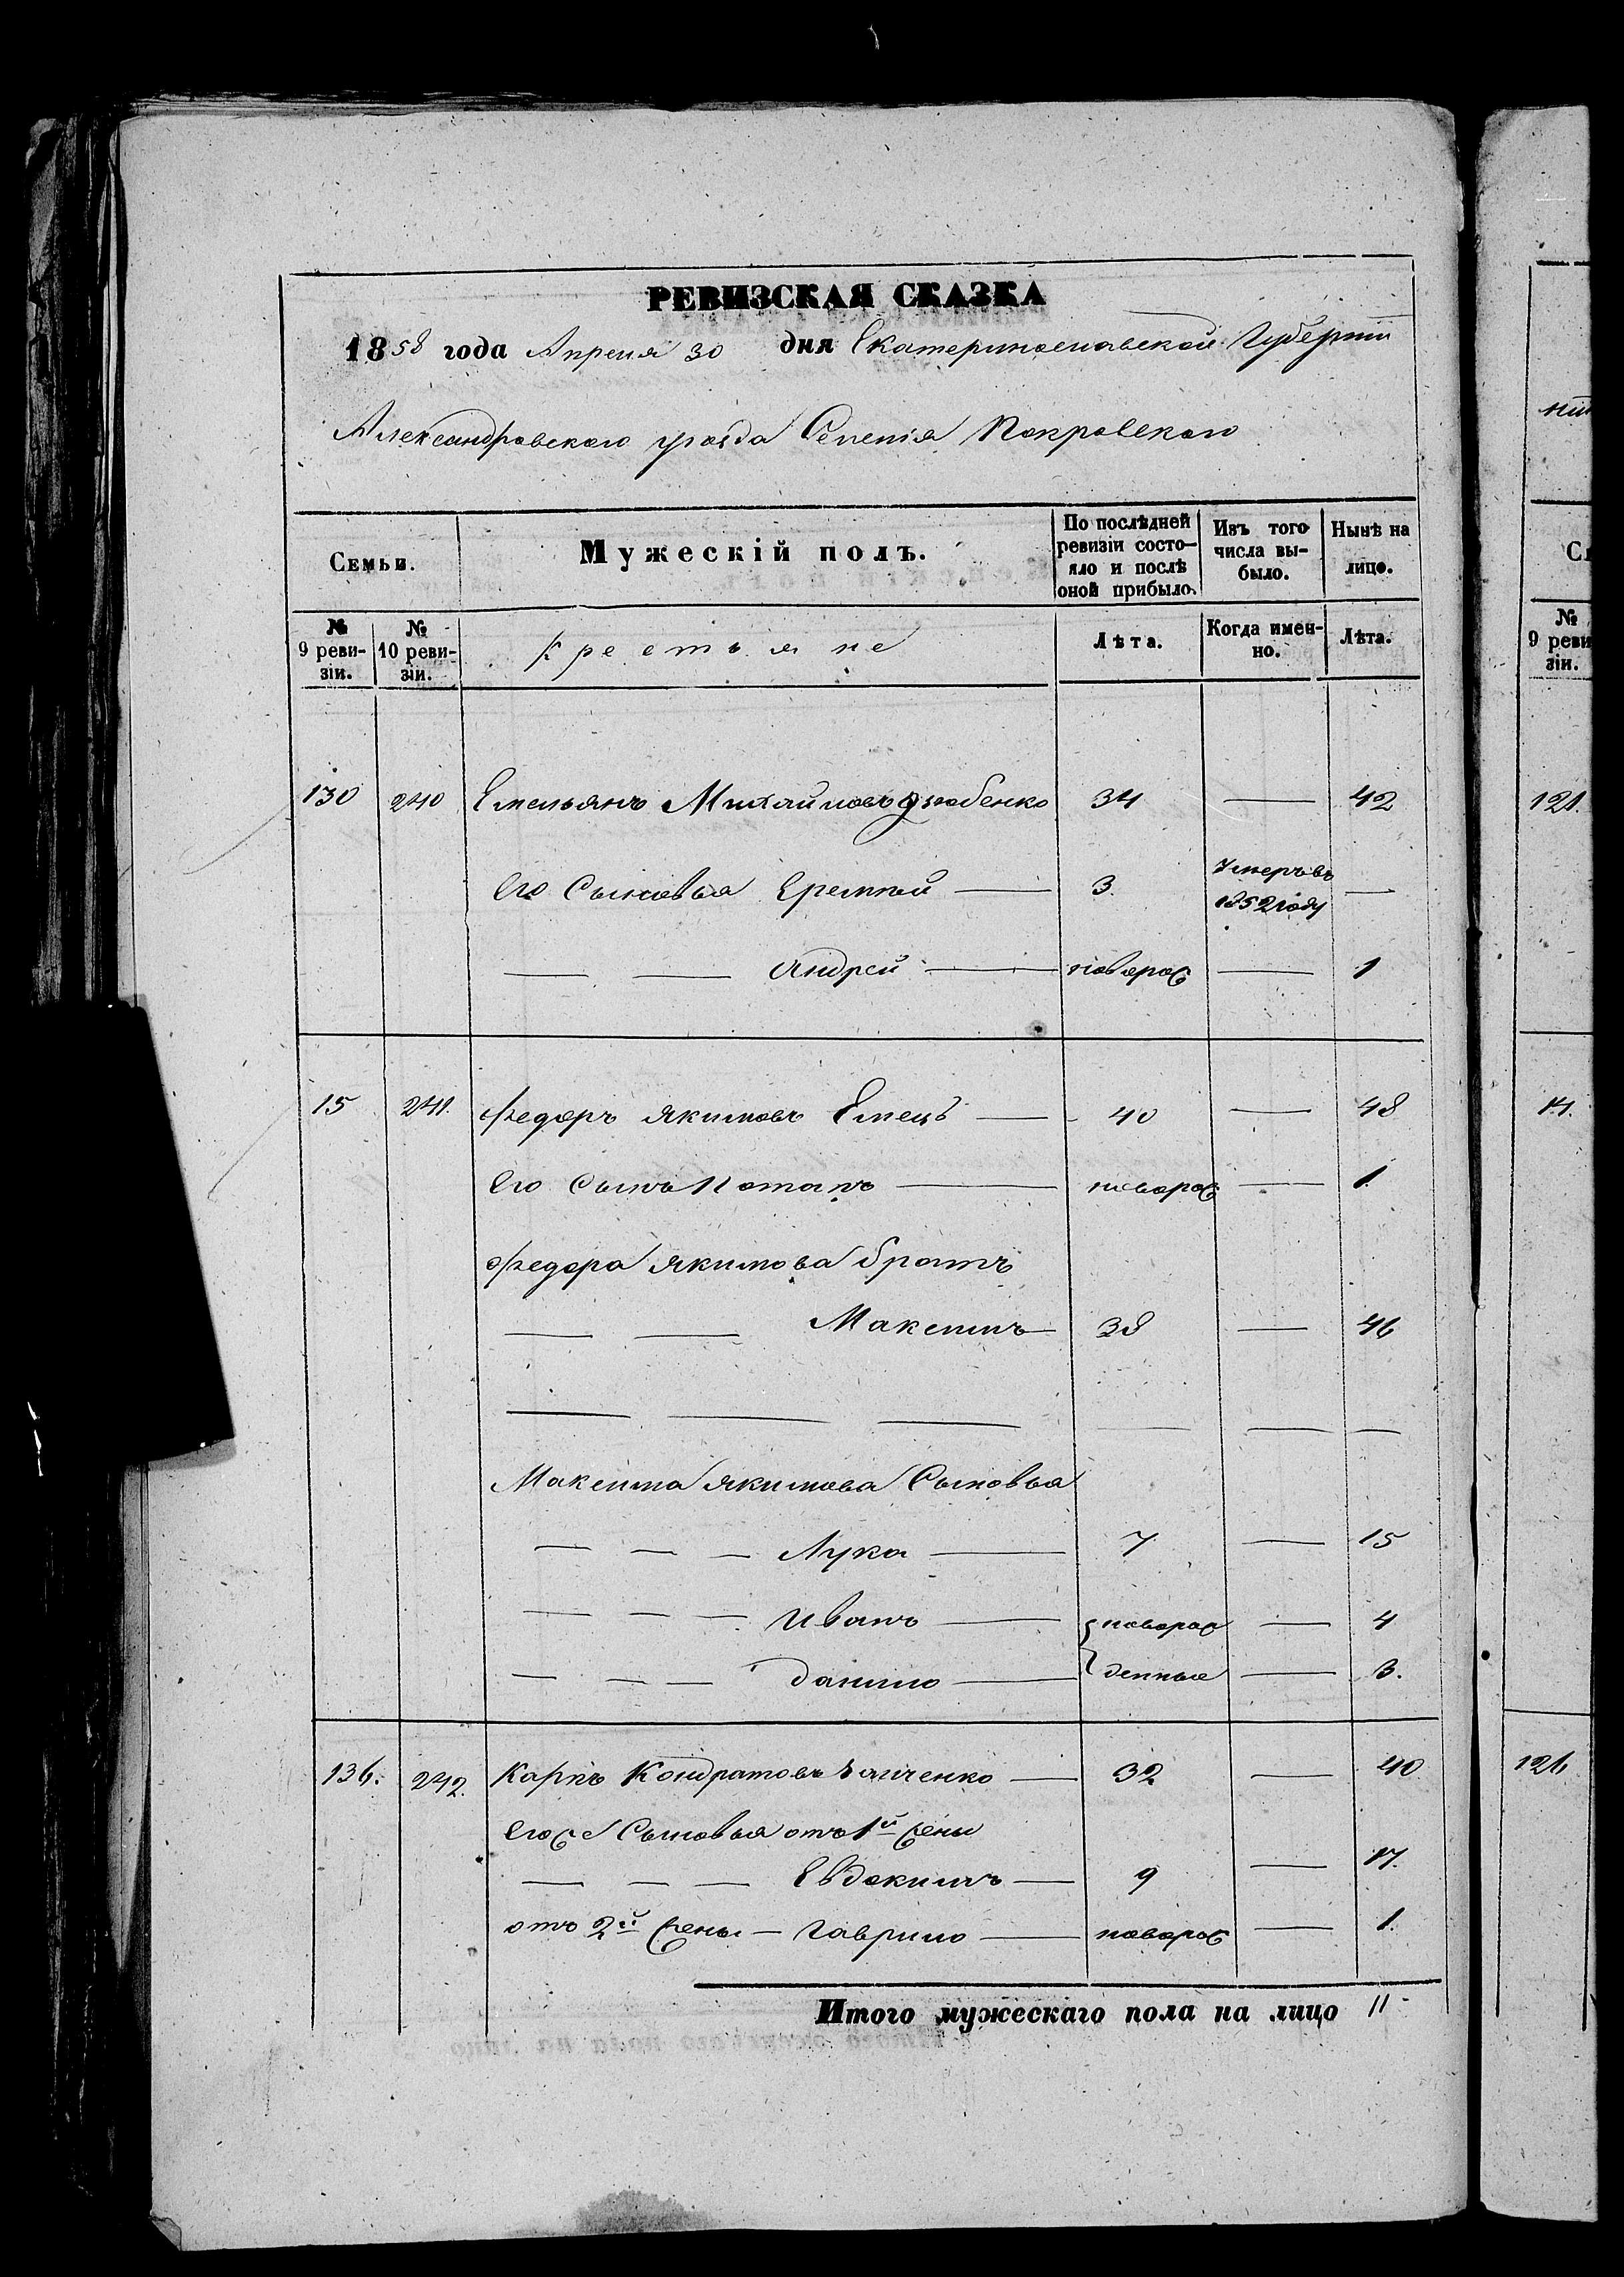 РЕВИЗСКАЯ СКАЗКА
1858 года Апреля 30 дня Екатеринославской Губернии
Александровского уезда Селения Покровского
Семьи.
Мужескій полъ.
По послѣдней ревизіи состо-яло и послѣ оной прибыло.
Изъ того числа вы-было.
Нынѣ на лицо.
№ 9 реви-зіи.
№ 10 реви-зіи.
Крестьяне
Лѣта.
Когда имен-но.
Лѣта.
130 240 Емельянъ Михайловъ 34 — 42
Его Сыновья Еремпей — 3. Умеръ въ 1852 году —
— — Андрей — новорож — 1
15 241. Федоръ Якимовъ Емецъ — 40 — 48
Его Сынъ Потапъ — новорож — 1.
Федора Якимова братъ
— — Максимъ — 38 — 46
— — — — — —
Максима Якимова Сыновья
— — — Лука — 7 — 15
— — — Иванъ — новорож — 4
— — — Данило — денные — 3.
136. 242. Карпъ Кондратовъ — 32 — 40
Его Сыновья отъ 1й жены
— — — Евдокимъ — 9 — 17.
отъ 2й жены — Гаврило — новорож — 1.
Итого мужескаго пола на лицо 11
№ 9 реви зіи.
121.
14.
126